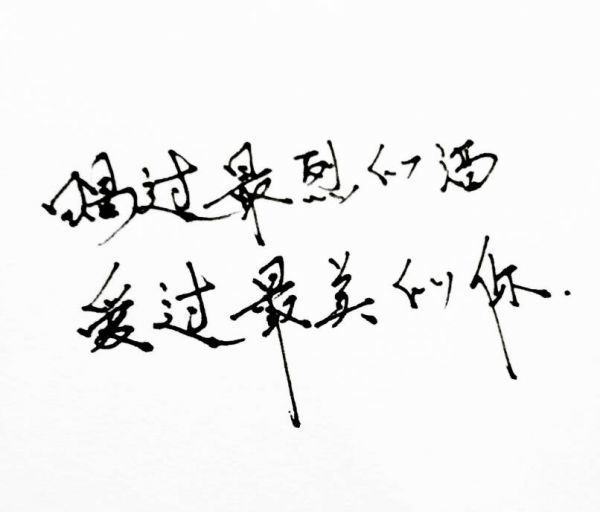 喝过最烈的酒
爱过最美的你.